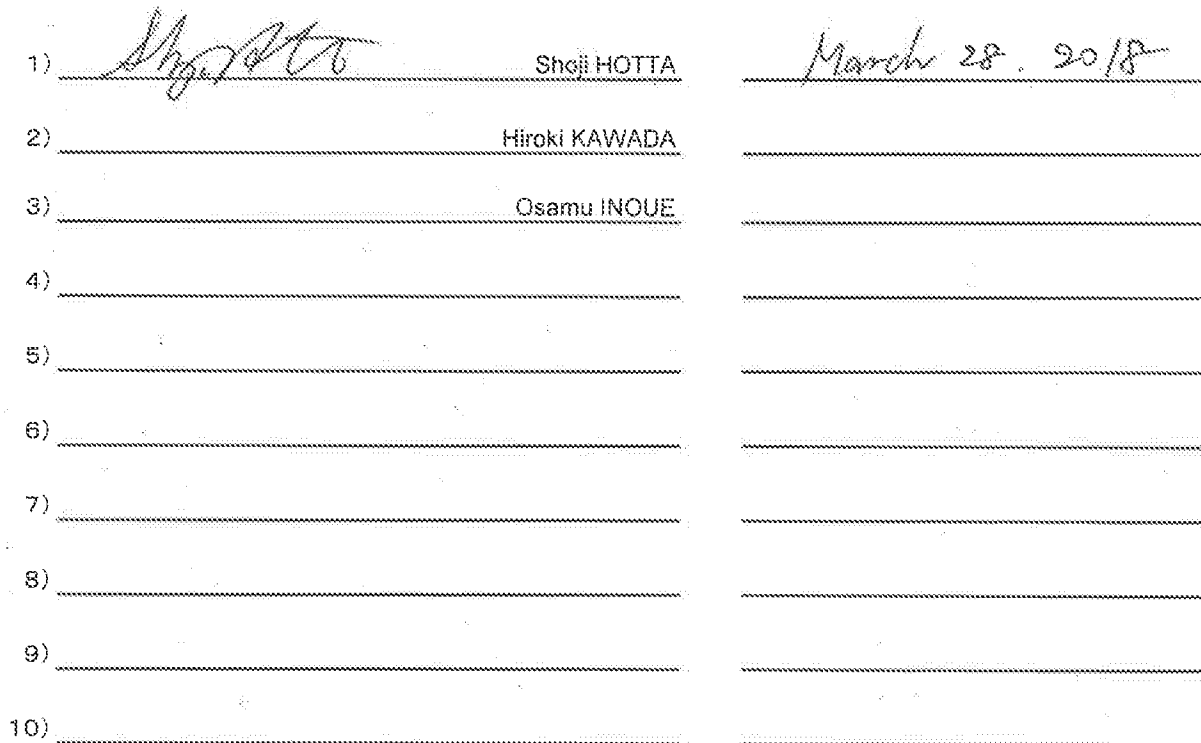 1) Shoji Hotta Shoji HOTTA March 28. 2018
2) Hiroki KAWADA
3) Osamu INOUE
4)
5)
6)
7)
8)
9)
10)